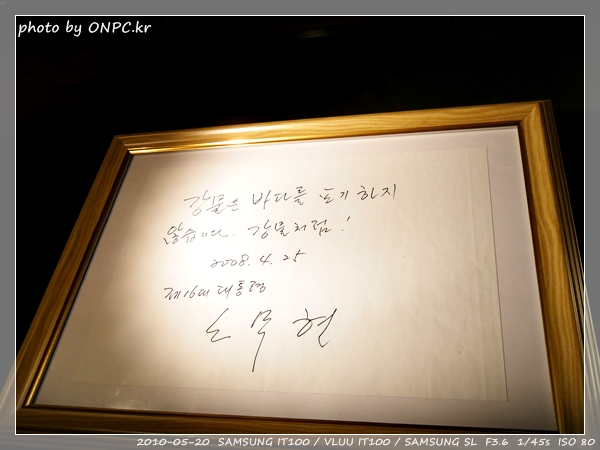 photo by ONPC.kr
강물은 바다를 포기하지
않습니다. 강물처럼!
2008. 4. 25
제16대 대통령
노무현
2010-05-20 SAMSUNG IT100 / VLUU IT100 / SAMSUNG SL F3.6 1/45s ISO 80